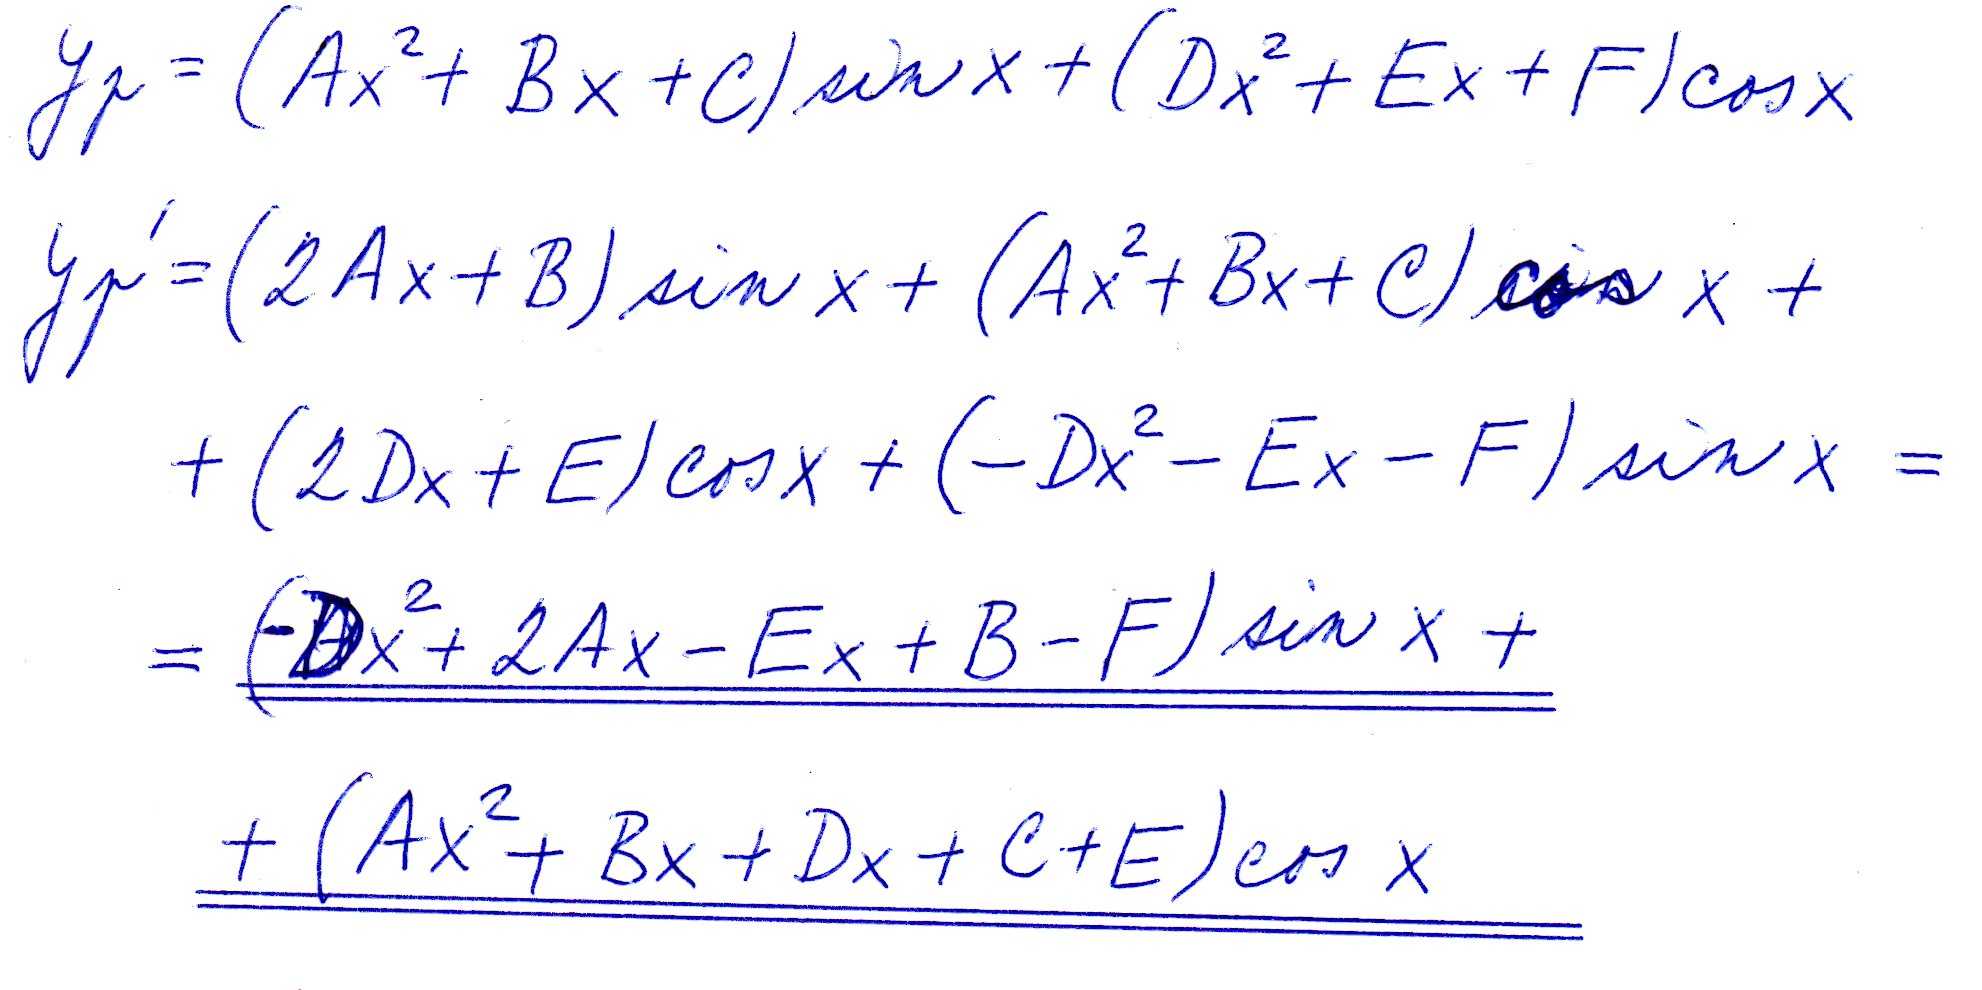 yp = (Ax² + Bx + C) sin x + (Dx² + Ex + F) cos x
yp' = (2Ax + B) sin x + (Ax² + Bx + C) cos x +
+ (2Dx + E) cos x + (-Dx² - Ex - F) sin x =
= (-Dx² + 2Ax - Ex + B - F) sin x +
+ (Ax² + Bx + Dx + C + E) cos x